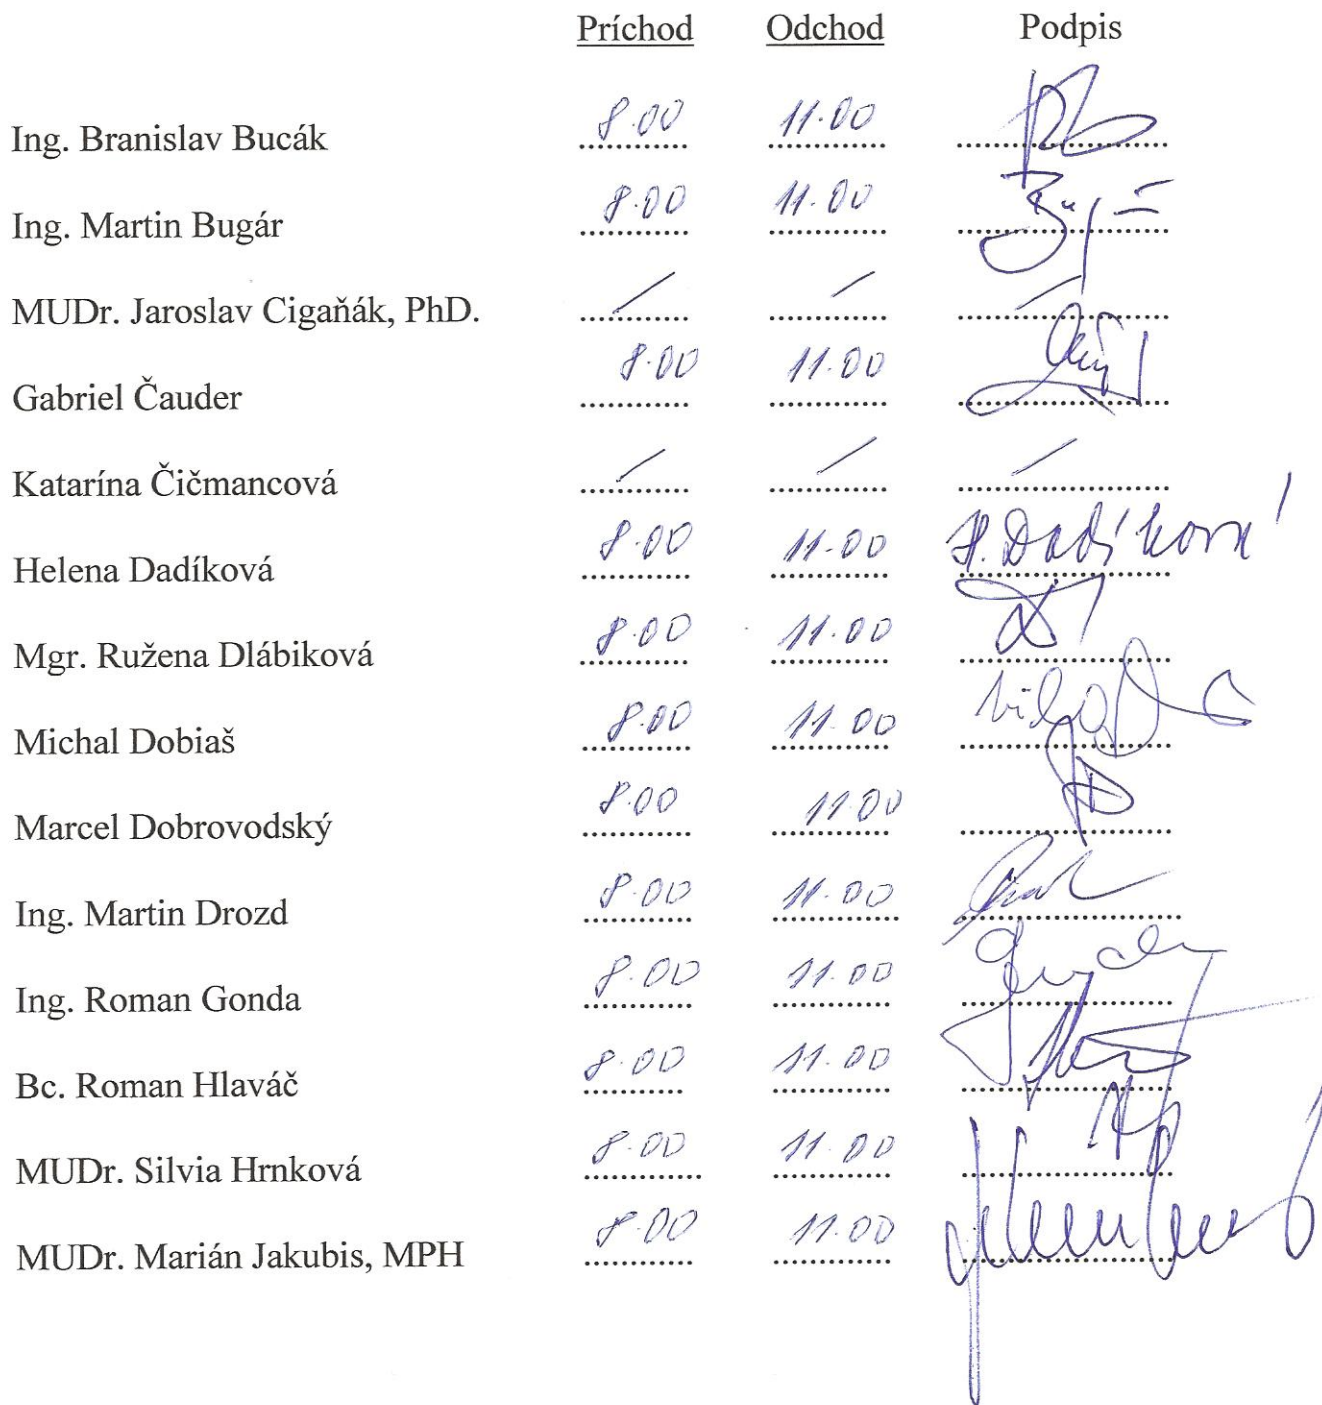 Príchod Odchod Podpis
Ing. Branislav Bucák 8.00 11.00
Ing. Martin Bugár 8.00 11.00
MUDr. Jaroslav Cigaňák, PhD. / / /
Gabriel Čauder 8.00 11.00
Katarína Čičmancová / / /
Helena Dadíková 8.00 11.00 H. Dadíková
Mgr. Ružena Dlábiková 8.00 11.00
Michal Dobiaš 8.00 11.00
Marcel Dobrovodský 8.00 11.00
Ing. Martin Drozd 8.00 11.00
Ing. Roman Gonda 8.00 11.00
Bc. Roman Hlaváč 8.00 11.00
MUDr. Silvia Hrnková 8.00 11.00
MUDr. Marián Jakubis, MPH 8.00 11.00